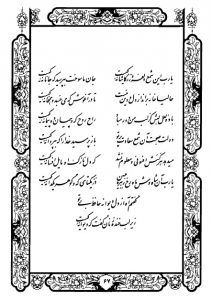 یارب این شمع دلفروز ز کاشانه کیست جان ما سوخت بپرسید که جانانه کیست
حالیا خانه برانداز دل و دین منست تا در آغوش که می خسبد و همخانه کیست
باده لعل لبش کز لب من دور مباد راح روح که و پیمان ده پیمانه کیست
دولت صحبت آن شمع سعادت پرتو باز پرسید خدا را که به پروانه کیست
میدهد هر کسش افسونی و معلوم نشد که دل نازک او مایل افسانه کیست
یارب آن شاه وش ماه رخ زهره جبین در یکتای که و گوهر یکدانه کیست
گفتم آه از دل دیوانه حافظ بی تو
زیر لب خنده زنان گفت که دیوانه کیست
۶۷